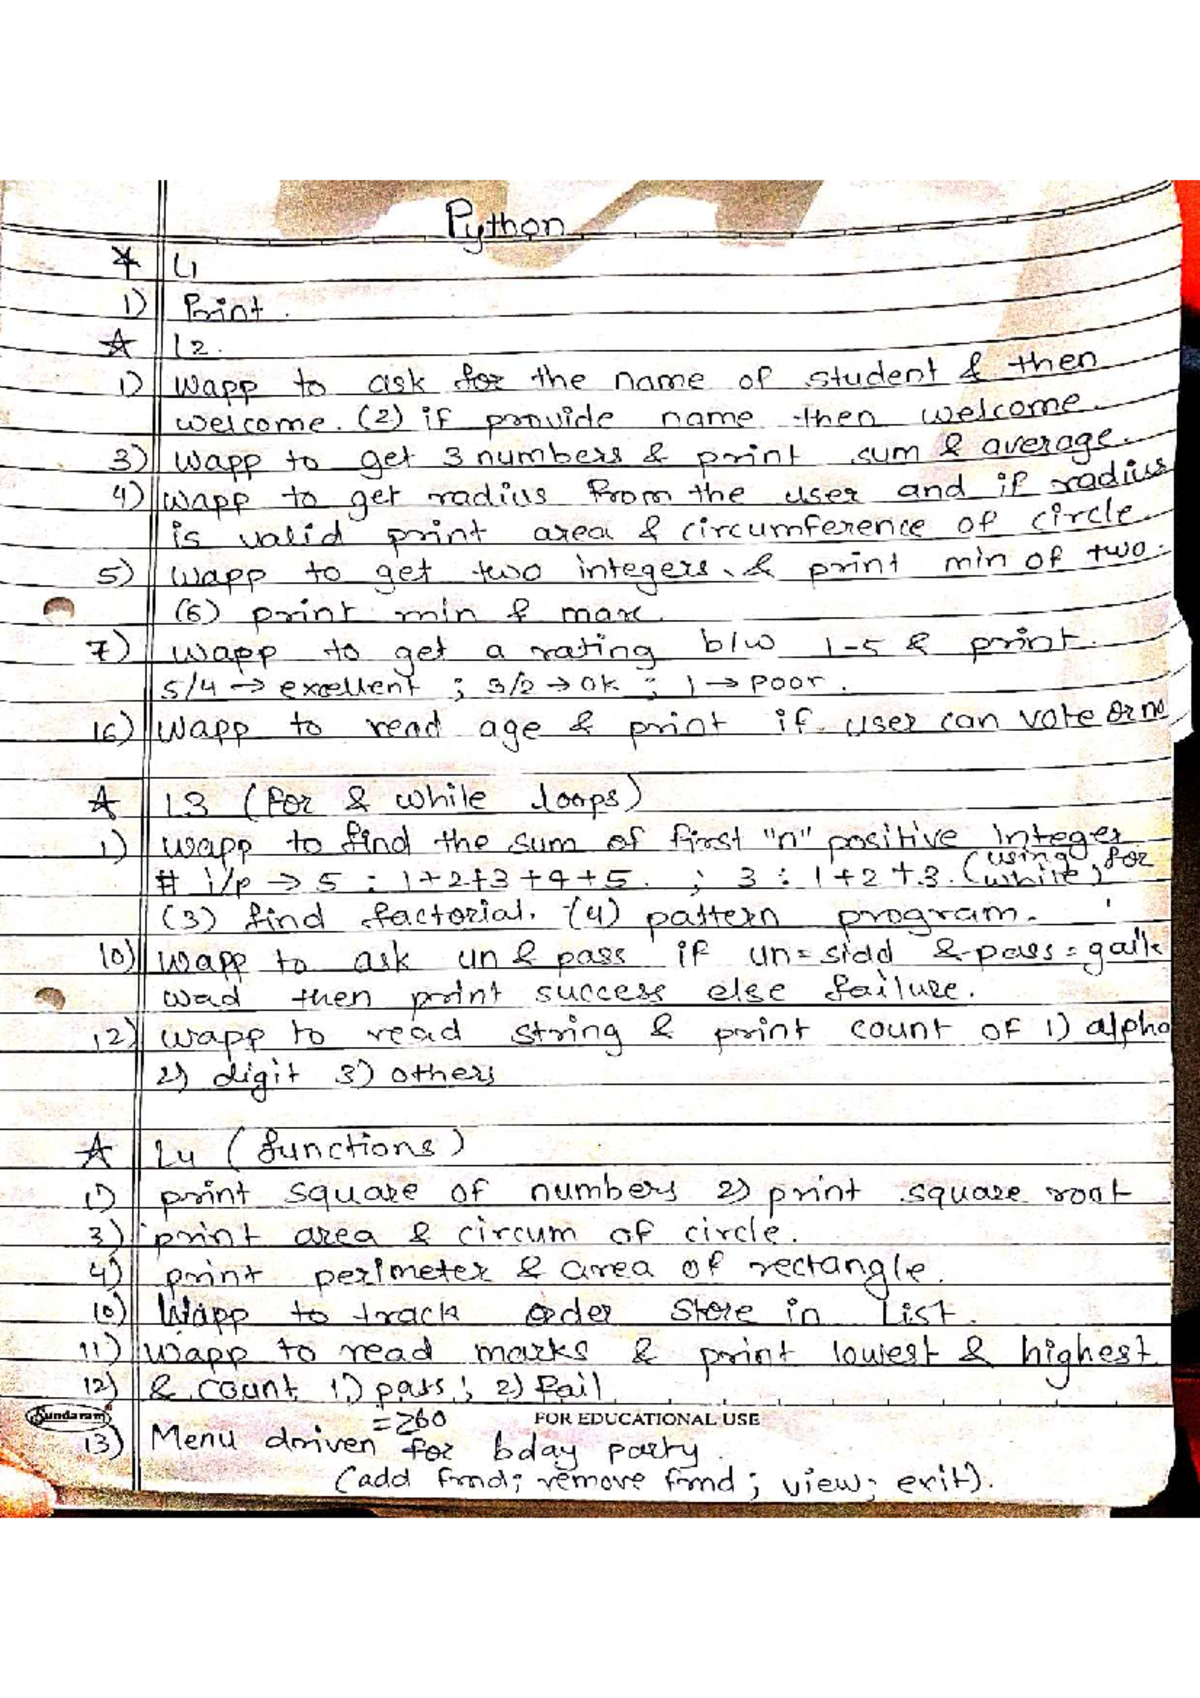 Python
L1
1) Print.
L2.
1) wapp to ask for the name of student & then
welcome. (2) if provide name then welcome.
3) wapp to get 3 numbers & print sum & average.
4) wapp to get radius from the user and if radius
is valid print area & circumference of circle
5) wapp to get two integers, & print min of two.
(6) print min & max.
7) wapp to get a rating b/w 1-5 & print.
5/4 → excellent ; 3/2 → ok ; 1 → poor.
16) Wapp to read age & print if user can vote or no
L3 (for & while loops)
1) wapp to find the sum of first "n" positive integer
# i/p → 5 : 1+2+3+4+5. ; 3 : 1+2+3. (using for
while)
(3) find factorial. (4) pattern program.
10) wapp to ask un & pass if un = sidd & pass = gaik
wad then print success else failure.
12) wapp to read string & print count of 1) alpha
2) digit 3) others
L4 (functions)
1) print square of numbers 2) print square root
3) print area & circum of circle.
4) print perimeter & area of rectangle.
10) Wapp to track order store in list.
11) wapp to read marks & print lowest & highest
12) & count 1) pass ; 2) fail
Sundaram = >60 FOR EDUCATIONAL USE
13) Menu driven for bday party.
(add frnd; remove frnd ; view; exit).